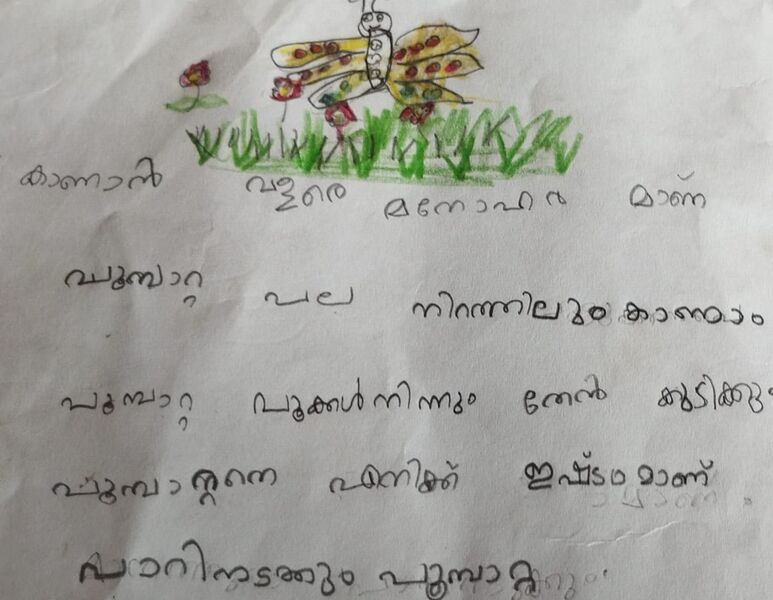 കാണാൻ വളരെ മനോഹര മാണ്
പൂമ്പാറ്റ പല നിറത്തിലും കാണാം
പൂമ്പാറ്റ പൂക്കൾ നിന്നും തേൻ കുടിക്കും
പൂമ്പാറ്റനെ എനിക്ക് ഇഷ്ടം മാണ്
പാറിനടക്കും പൂമ്പാറ്റ